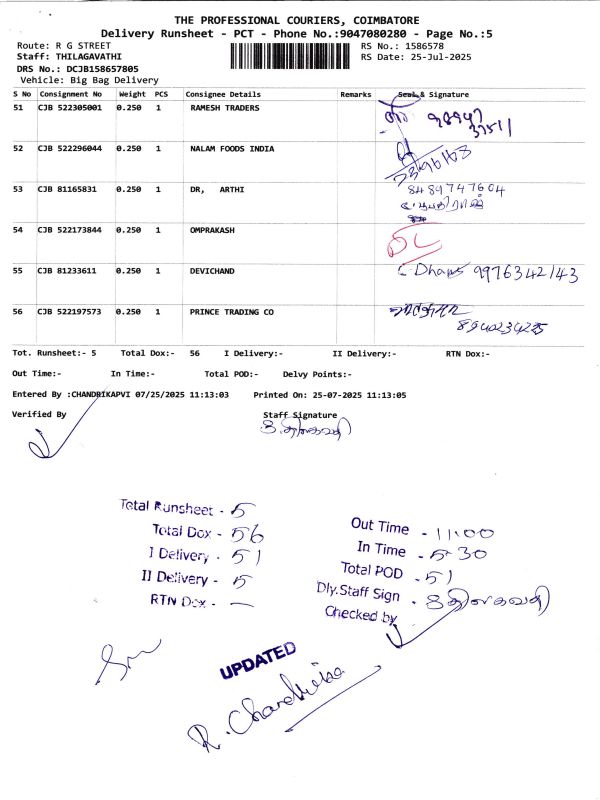 THE PROFESSIONAL COURIERS, COIMBATORE
Delivery Runsheet - PCT - Phone No.:9047080280 - Page No.:5
Route: R G STREET RS No.: 1586578
Staff: THILAGAVATHI RS Date: 25-Jul-2025
DRS No.: DCJB158657805
Vehicle: Big Bag Delivery
S No Consignment No Weight PCS Consignee Details Remarks Seal & Signature
51 CJB 522305001 0.250 1 RAMESH TRADERS
52 CJB 522296044 0.250 1 NALAM FOODS INDIA
53 CJB 81165831 0.250 1 DR, ARTHI 8489747604
54 CJB 522173844 0.250 1 OMPRAKASH
55 CJB 81233611 0.250 1 DEVICHAND 9976342143
56 CJB 522197573 0.250 1 PRINCE TRADING CO
Tot. Runsheet:- 5 Total Dox:- 56 I Delivery:- II Delivery:- RTN Dox:-
Out Time:- In Time:- Total POD:- Delvy Points:-
Entered By :CHANDRIKAPVI 07/25/2025 11:13:03 Printed On: 25-07-2025 11:13:05
Verified By Staff Signature
Total Runsheet - 5
Total Dox - 56
I Delivery - 51
II Delivery - 5
RTN Dox - —
Out Time - 11:00
In Time - 5-30
Total POD - 51
Dly.Staff Sign - திலகவதி
Checked by
UPDATED
R. Chandrika